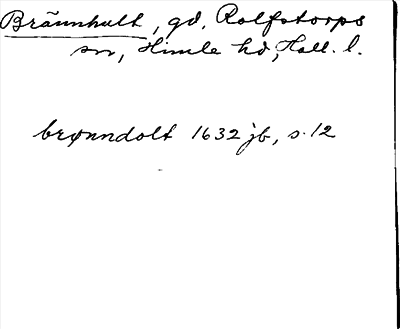 Brännhult, gd, Rolfstorps
sn, Himle hd, Hall. l.
brønndolt 1632 jb, s. 12